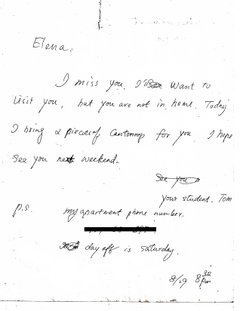 Elena.
I miss you. I Want to
visit you, but you are not in home. Today
I bring a piece of for you I hope
See you next weekend.
See you
your student. Tom
p.s. my apartment phone number.
day off is saturday.
8/19 8 pm